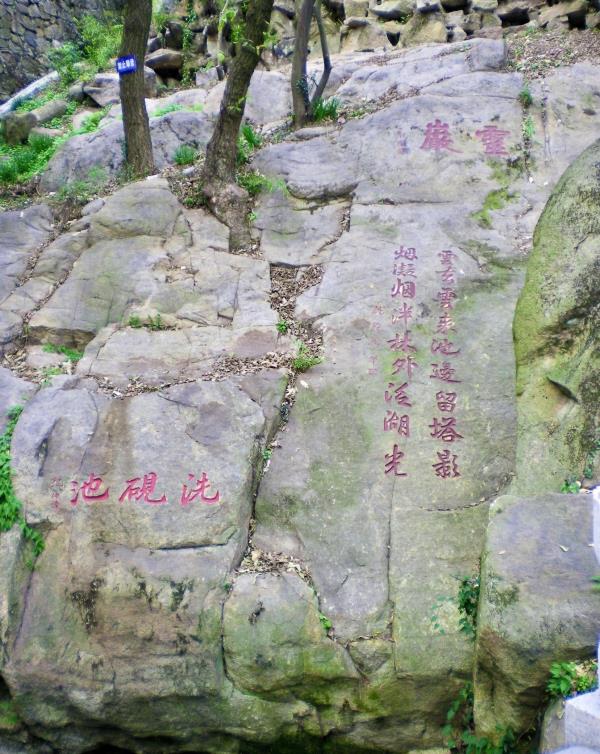 靈巖
雲去雲來池邊留塔影
烟凝烟泮林外泛湖光
洗硯池